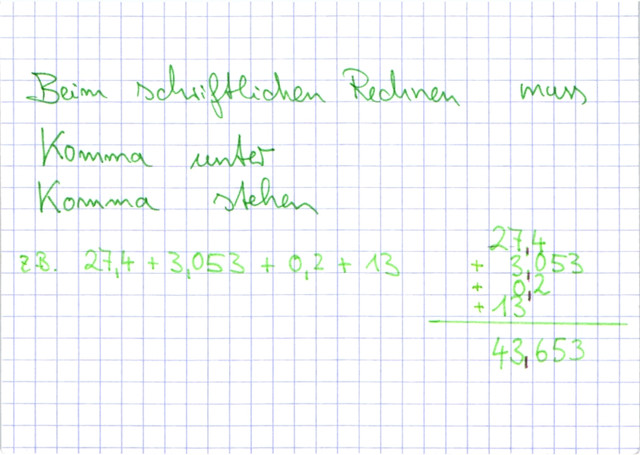 Beim schriftlichen Rechnen muss
Komma unter
Komma stehen
z.B. 27,4 + 3,053 + 0,2 + 13
27,4
+ 3,053
+ 0,2
+ 13
43,653